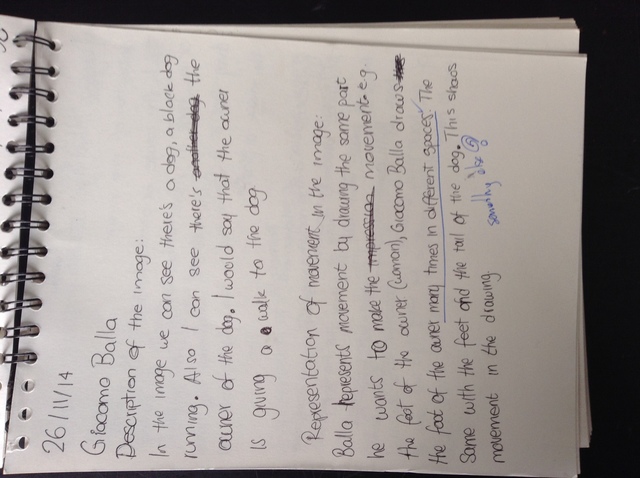 26/11/14
Giacomo Balla
Description of the image:
In the image we can see there's a dog, a black dog
running. Also I can see there's the
owner of the dog. I would say that the owner
is giving a walk to the dog
Representation of movement in the image:
Balla represents movement by drawing the same part
he wants to make the impression movement e.g.
the foot of the owner (woman), Giacomo Balla draws
the foot of the owner many times in different spaces. The
same with the feet and the tail of the dog. This shows
movement in the drawing
something else?